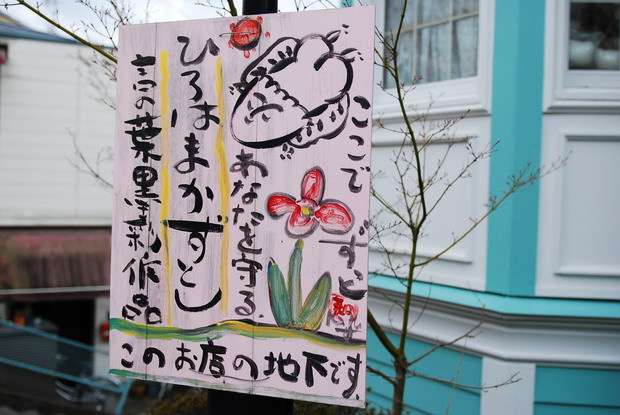 ここで
ずっと
あなたを守る.
ひろはまかずとし
言の葉墨彩作品
このお店の地下です.